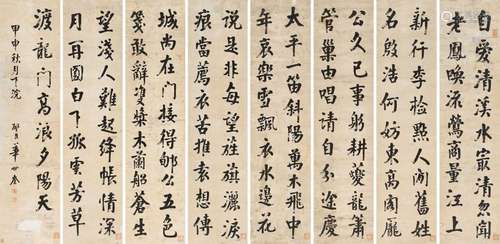 自愛清溪水清忽聞
老鳳喚流鶯商量江上
新行李檢點人間舊姓
名殷浩何妨東高閣龐
公久已事躬耕夔龍簫
管巢由唱請自分途慶
太平一笛斜陽萬木飛中
年哀樂雪飄衣水邊花
說是非每望旌旗灑淚
痕當薦衣苦惟袁想傳
城尚在門接得郇公五色
箋敢辭雙槳木蘭船蒼生
望淺人難起絳帳情深
月再圓白下孤雲芳草
渡龍門高浪夕陽天
甲申秋月院